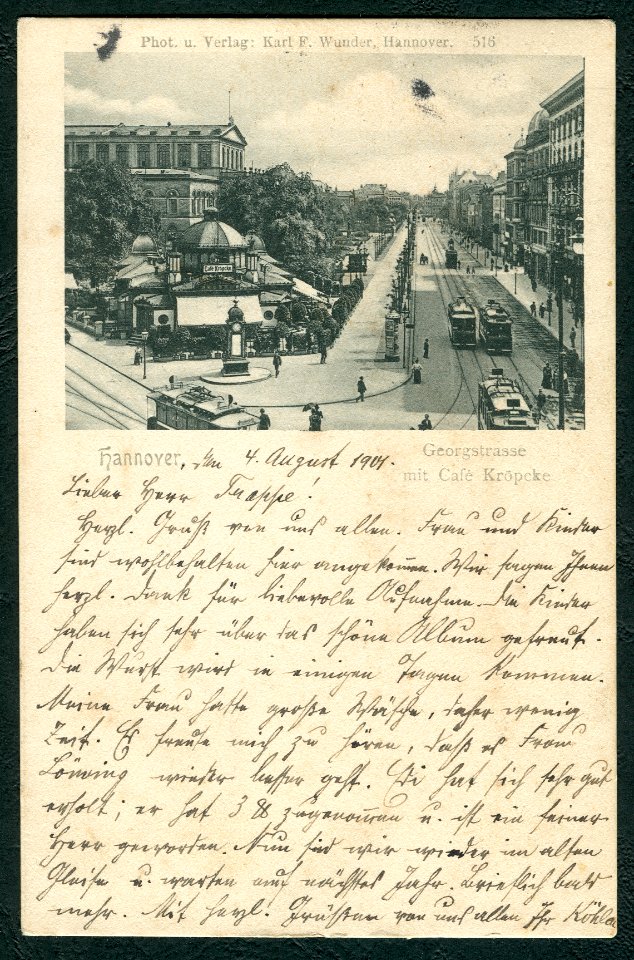 Phot. u. Verlag: Karl F. Wunder, Hannover. 516
Café Kröpcke
Georgstrasse
mit Café Kröpcke
Hannover, den 4. August 1901.
Lieber Herr
Herzl. Gruß von uns allen. Frau und Kinder
sind wohlbehalten hier angekommen. Wir sagen Ihnen
herzl. Dank für liebevolle Aufnahme. Die Kinder
haben sich sehr über das schöne Album gefreut.
Die Wurst wird in einigen Tagen kommen.
Meine Frau hatte große Wäsche, daher wenig
Zeit. Es freute mich zu hören, daß es Frau
wieder besser geht. hat sich sehr gut
erholt; er hat 3 ℔ zugenommen u. ist ein feiner
Herr geworden. Nun sind wir wieder im alten
Gleise u. warten auf nächstes Jahr. Brieflich bald
mehr. Mit herzl. Grüßen von uns allen Ihr